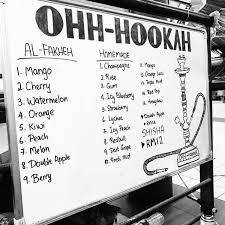 OHH-HOOKAH
AL-FAKHEH
1. Mango
2. Cherry
3. Watermelon
4. Orange
5. Kiwi
6. Peach
7. Melon
8. Double Apple
9. Berry
HOMEMADE
1. Champagne
2. Rose
3. Gum
4. Icy Blueberry
5. Strawberry
6. Lychee
7. Icy Peach
8. Redbull
9. Dark Grape
10. Fresh Mint
11. Mango
12.
13. Tropical Mix
14. Red Tea
15. Honeydew
SHISHA
RM12